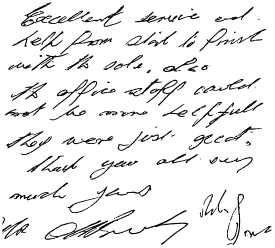 Excellent service and
help from start to finish
with the sale, also
the office staff could
not be more helpfull
they were just great,
thank you all very
much yours